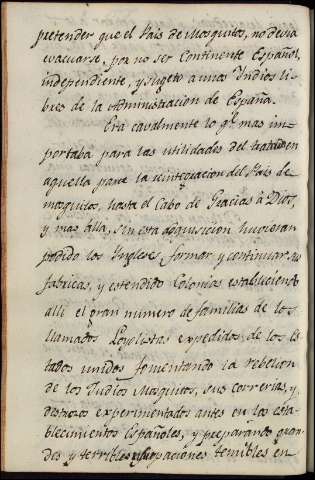 pretender que el Pais de Mosquitos, no devia
evacuarse, por no ser Continente Español,
independiente, y sugeto a unos Yndios li-
bres de la Administracion de España.
Era cavalmente lo q.e mas im-
portaba para las utilidades del tratado en
aquella parte la reintegracion del Pais de
mosquitos, hasta el Cabo de Gracias à Dios,
y mas allá, sin esta adquisicion huvieran
podido los Yngleses formar y continuar sus
fabricas, y estendido Colonias estableciendo
alli el gran numero de familias de los
llamados Loyalistas expedidos de los Es-
tados unidos fomentando la rebelion
de los Yndios Mosquitos, sus correrias, y
destrozos experimentados antes en los esta-
blecimientos Españoles, y preparando gran-
des y terribles usurpaciones temibles en